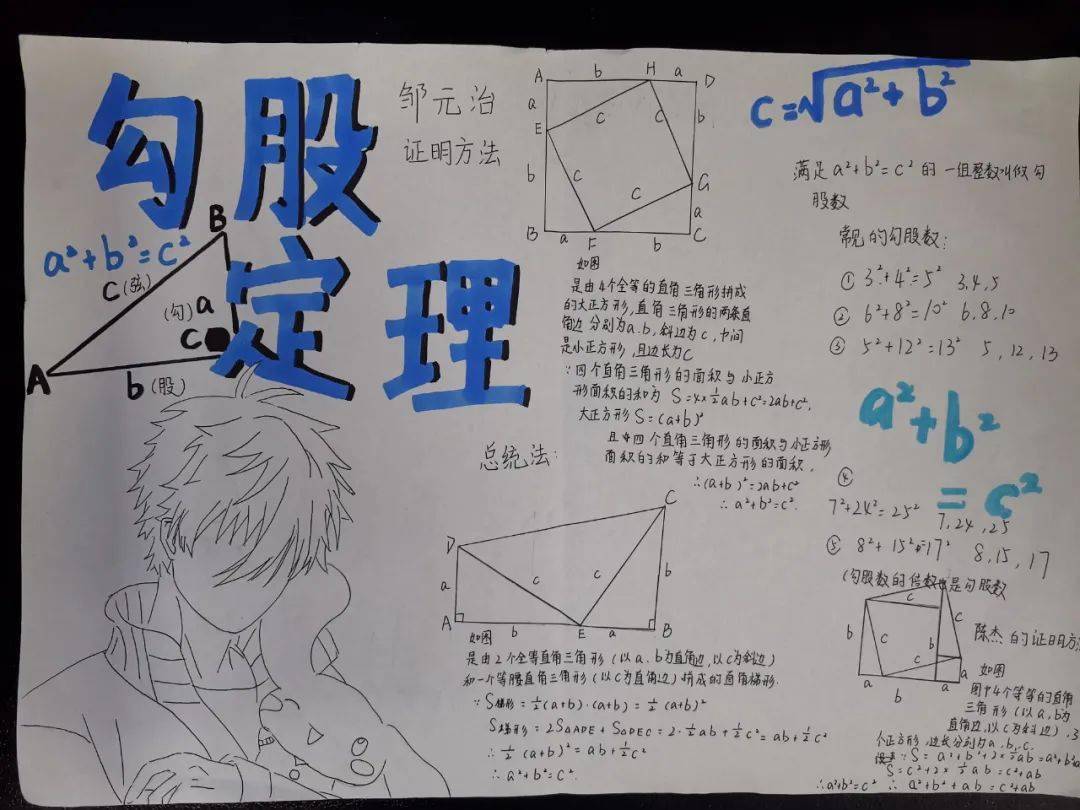 勾股
定理
a²+b²=c²
B
c(弦)
(勾)a
C
A
b(股)
邹元治
证明方法
A b H a D
a c c b
E
b c c G
a
B a F b C
如图
是由4个全等的直角三角形拼成
的大正方形,直角三角形的两条直
角边分别为a、b,斜边为c,中间
是小正方形,且边长为c
∵四个直角三角形的面积与小正方
形面积的和为 S=4×½ab+c²=2ab+c²,
大正方形S=(a+b)²
且四个直角三角形的面积与小正方形
面积的和等于大正方形的面积,
∴(a+b)²=2ab+c²
∴a²+b²=c².
总统法:
C
D
a c c b
A b E a B
如图
是由2个全等直角三角形(以a、b为直角边,以c为斜边)
和一个等腰直角三角形(以c为直角边)拼成的直角梯形.
∵S梯形=½(a+b)·(a+b)=½(a+b)²
S梯形=2S△ADE+S△DEC=2·½ab+½c²=ab+½c²
∴½(a+b)²=ab+½c²
∴a²+b²=c².
c=√a²+b²
满足a²+b²=c²的一组整数叫做勾
股数
常见的勾股数:
① 3²+4²=5² 3,4,5
② 6²+8²=10² 6,8,10
③ 5²+12²=13² 5,12,13
a²+b²
=c²
④
7²+24²=25² 7,24,25
⑤ 8²+15²=17² 8,15,17
(勾股数的倍数也是勾股数
c
b c b c
c a
a b a
陈杰的证明方
如图
图中4个等等的直角
三角形(以a,b为
直角边,以c为斜边),3
个正方形,边长分别为a、b、c.
S=a²+b²+2×½ab=a²+b²
S=c²+2×½ab=c²+ab
∴a²+b²=c² ∴a²+b²+ab=c²+ab